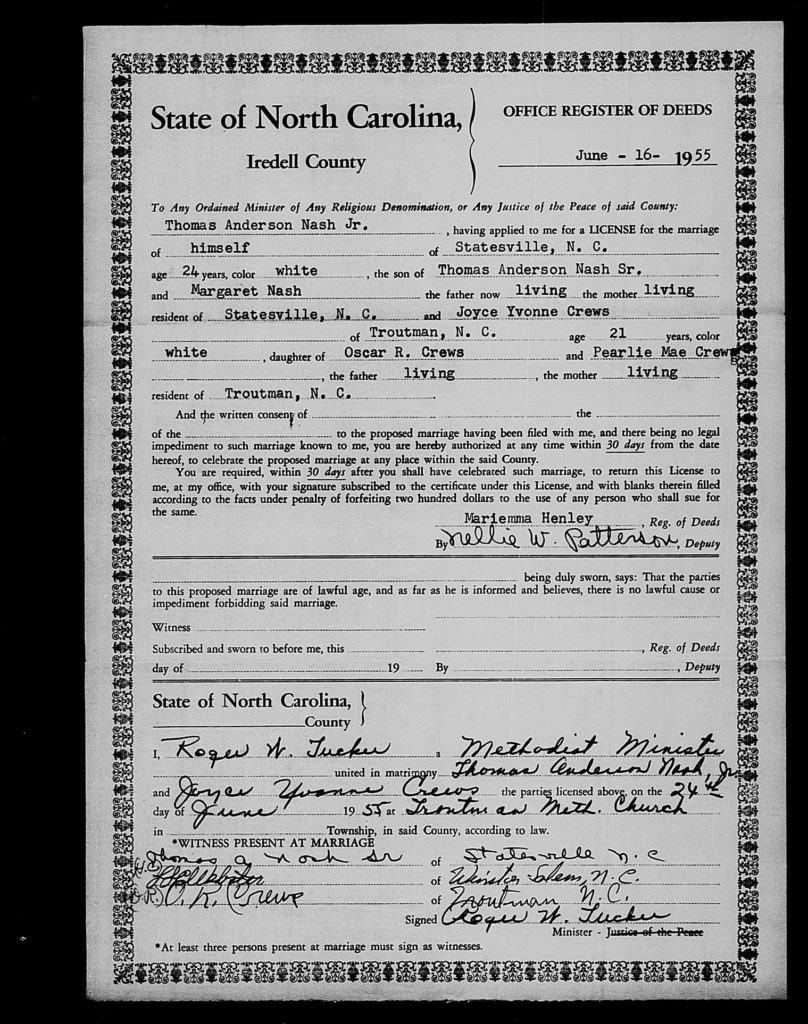 State of North Carolina, OFFICE REGISTER OF DEEDS
Iredell County June - 16- 1955
To Any Ordained Minister of Any Religious Denomination, or Any Justice of the Peace of said County:
Thomas Anderson Nash Jr. , having applied to me for a LICENSE for the marriage
of himself of Statesville, N. C.
age 24 years, color white , the son of Thomas Anderson Nash Sr.
and Margaret Nash the father now living the mother living
resident of Statesville, N. C. and Joyce Yvonne Crews
of Troutman, N. C. age 21 years, color
white , daughter of Oscar R. Crews and Pearlie Mae Crews
, the father living , the mother living
resident of Troutman, N. C.
And the written consent of the
of the to the proposed marriage having been filed with me, and there being no legal
impediment to such marriage known to me, you are hereby authorized at any time within 30 days from the date
hereof, to celebrate the proposed marriage at any place within the said County.
You are required, within 30 days after you shall have celebrated such marriage, to return this License to
me, at my office, with your signature subscribed to the certificate under this License, and with blanks therein filled
according to the facts under penalty of forfeiting two hundred dollars to the use of any person who shall sue for
the same.
Mariemma Henley , Reg. of Deeds
By Nellie W. Patterson, Deputy
being duly sworn, says: That the parties
to this proposed marriage are of lawful age, and as far as he is informed and believes, there is no lawful cause or
impediment forbidding said marriage.
Witness
Subscribed and sworn to before me, this , Reg. of Deeds
day of 19 By , Deputy
State of North Carolina,
County
I, Roger W. Tucker a Methodist Minister
united in matrimony Thomas Anderson Nash, Jr.
and Joyce Yvonne Crews the parties licensed above, on the 24th
day of June 1955 at Troutman Meth. Church
in Township, in said County, according to law.
*WITNESS PRESENT AT MARRIAGE
Thomas A Nash Sr of Statesville N. C
of Winston Salem, N. C.
O. R. Crews of Troutman N. C.
Signed Roger W. Tucker
Minister - Justice of the Peace
*At least three persons present at marriage must sign as witnesses.